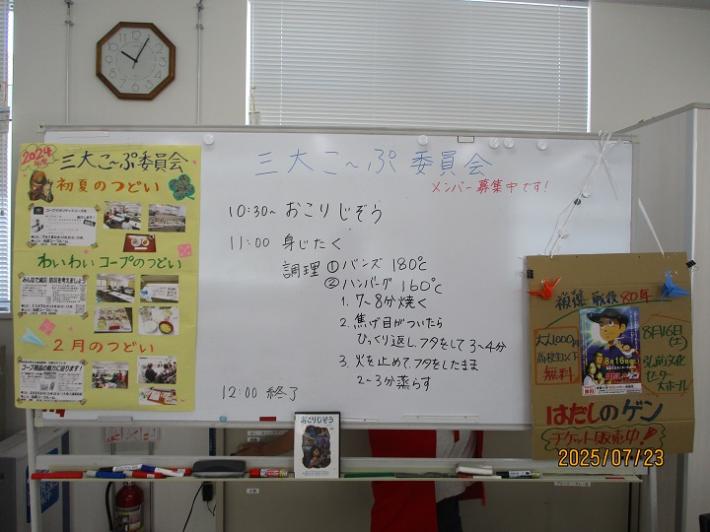 2024
三大こ〜ぷ委員会
初夏のつどい
わいわいコープのつどい
みんなで減災 防災を考えましょう
2月のつどい
コープ商品の魅力に迫ります!
三大こ〜ぷ委員会
メンバー募集中です!
10:30〜 おこりじぞう
11:00 身じたく
調理 ①バンズ 180℃
②ハンバーグ 160℃
1. 7〜8分焼く
2. 焦げ目がついたら
ひっくり返し、フタをして3〜4分
3. 火を止めて、フタをしたまま
2〜3分蒸らす
12:00 終了
おこりじぞう
被爆 戦後80年
大人1000円
高校生以下
無料
8月16日
(土)
弘前文化
センター
大ホール
はだしのゲン
チケット販売中!
2025/07/23